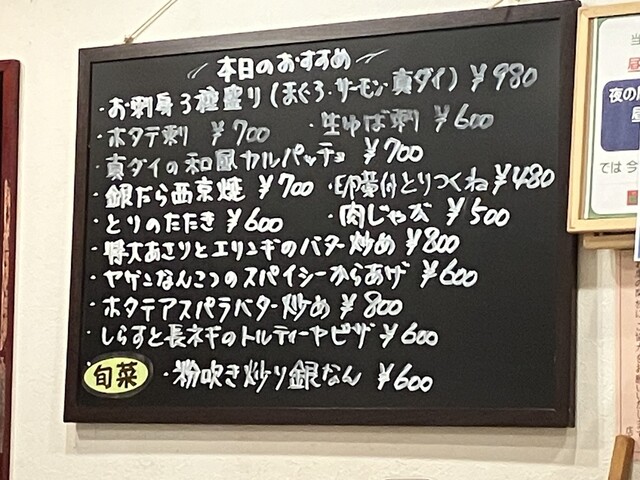 本日のおすすめ
・お刺身3種盛り(まぐろ・サーモン・真ダイ) ¥980
・ホタテ刺 ¥700 ・生ゆば刺 ¥600
・真ダイの和風カルパッチョ ¥700
・銀だら西京焼 ¥700 ・卵黄付とりつくね¥480
・とりのたたき ¥600 ・肉じゃが ¥500
・特大あさりとエリンギのバター炒め ¥800
・ヤゲンなんこつのスパイシーからあげ ¥600
・ホタテアスパラバター炒め ¥800
・しらすと長ネギのトルティーヤピザ ¥600
旬菜 ・粉吹き炒り銀なん ¥600
当
昼
夜の
昼
では 今